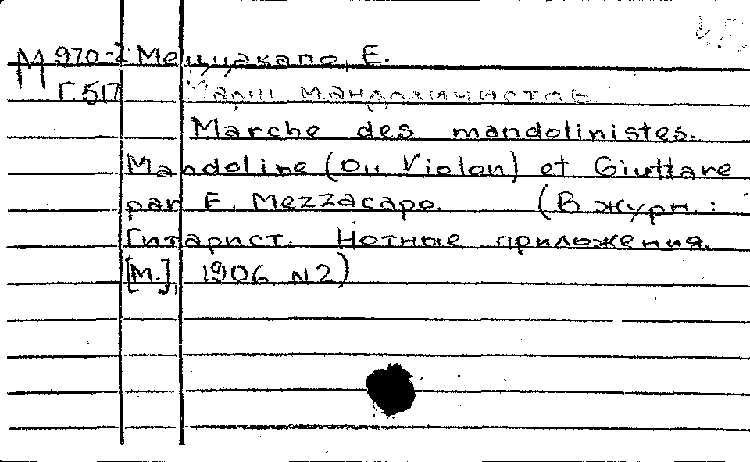 М 970-2 Меццакапо, Е.
Г.517 Марш мандолинистов
Marche des mandolinistes.
Mandoline (ou Violon) et Giuttare
par E. Mezzacapo. (В журн.:
Гитарист. Нотные приложения.
[М.], 1906, N2)